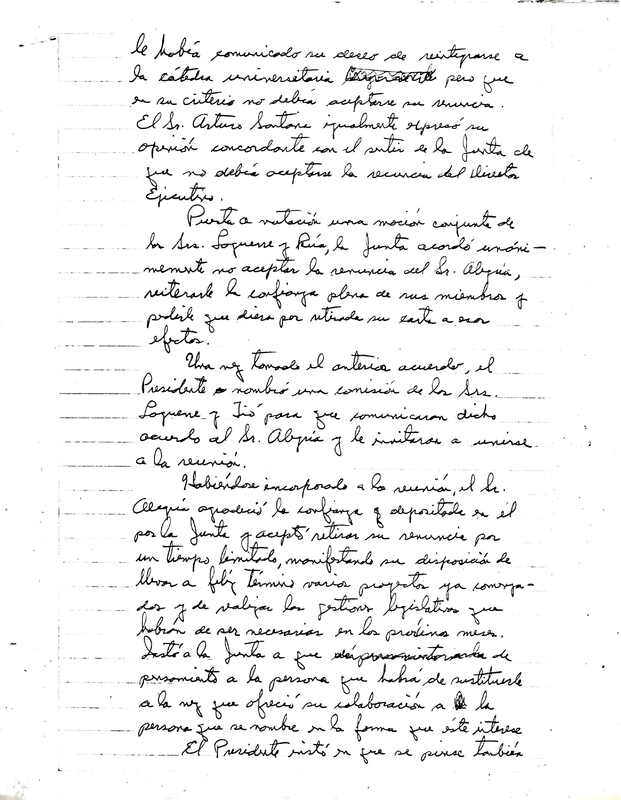 le había comunicado su deseo de reintegrarse a
la cátedra universitaria pero que
en su criterio no debía aceptarse su renuncia.
El Sr. Arturo Santana igualmente expresó su
opinión concordante con el sentir de la Junta de
que no debía aceptarse la renuncia del Director
Ejecutivo.
Puesta a votación una moción conjunta de
los Srs. Laguerre y Rúa, la Junta acordó unáni-
memente no aceptar la renuncia del Sr. Alegría,
reiterarle la confianza plena de sus miembros y
pedirle que diera por retirada su carta a esos
efectos.
Una vez tomado el anterior acuerdo, el
Presidente nombró una comisión de los Srs.
Laguerre y Tió para que comunicaran dicho
acuerdo al Sr. Alegría y le invitaran a unirse
a la reunión.
Habiéndose incorporado a la reunión, el Sr.
Alegría agradeció la confianza q depositada en él
por la Junta y aceptó retirar su renuncia por
un tiempo limitado, manifestando su disposición de
llevar a feliz término varios proyectos ya comenza-
dos y de realizar las gestiones legislativas que
habrán de ser necesarias en los próximos meses.
Instó a la Junta a que de
pensamiento a la persona que habrá de sustituirle
a la vez que ofreció su colaboración a la
persona que se nombre en la forma que éste interese
El Presidente instó en que se piense también